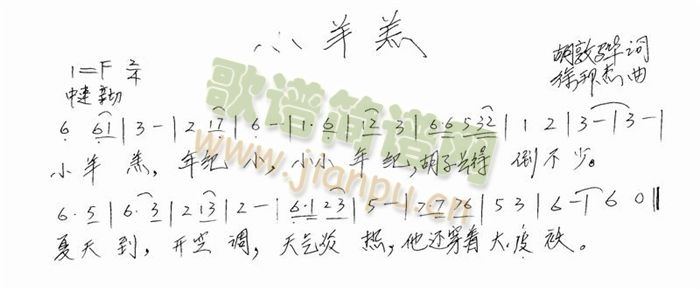 小羊羔
1=F 2/4
中速
胡敦骅词
徐邦杰曲
6 61 | 3 - | 2 17 | 6 - | 1·6 | 12 3 | 66 532 | 1 2 | 3 - | 3 - |
小羊羔,年纪小,小小年纪,胡子长得倒不少。
6·5 | 6·3 | 2 13 | 2 - | 6·1 23 | 5 - | 7·7 76 | 5 3 | 6 - | 6 0 ‖
夏天到,开空调,天气炎热,他还穿着大皮袄。
歌谱简谱网
www.jianpu.cn